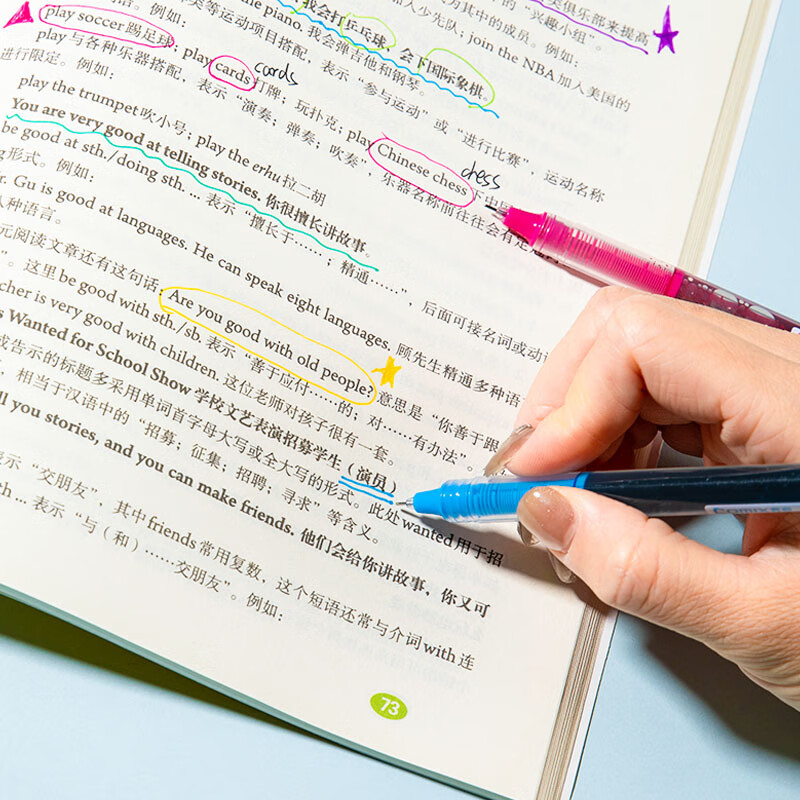 英俱乐部来提高
为其中的成员。例如：
的“兴趣小组”。
加入少先队；join the NBA 加入美国的
我会打乒乓球，会下国际象棋。
the piano. 我会弹吉他和钢琴。
类等运动项目搭配，表示“参与运动”或“进行比赛”，运动名称
例如：
play soccer 踢足球；play cards 打牌；玩扑克；play Chinese chess 下中
cards
chess
play与各种乐器搭配，表示“演奏；弹奏；吹奏”，乐器名称前往往会有定冠
进行限定。例如：
play the trumpet 吹小号；play the erhu 拉二胡
You are very good at telling stories. 你很擅长讲故事。
be good at sth./doing sth. ... 表示“擅长于……；精通……”，后面可接名词或动
g形式。例如：
r. Gu is good at languages. He can speak eight languages. 顾先生精通多种语
八种语言。
元阅读文章还有这句话：Are you good with old people? 意思是“你善于跟
”。这里be good with sth./sb. 表示“善于应付……的；对……有办法”。
cher is very good with children. 这位老师对孩子很有一套。
s Wanted for School Show 学校文艺表演招募学生（演员）
或告示的标题多采用单词首字母大写或全大写的形式。此处wanted用于招
，相当于汉语中的“招募；征集；招聘；寻求”等含义。
ll you stories, and you can make friends. 他们会给你讲故事，你又可
表示“交朋友”，其中friends常用复数，这个短语还常与介词with连
th ... 表示“与（和）……交朋友”。例如：
73